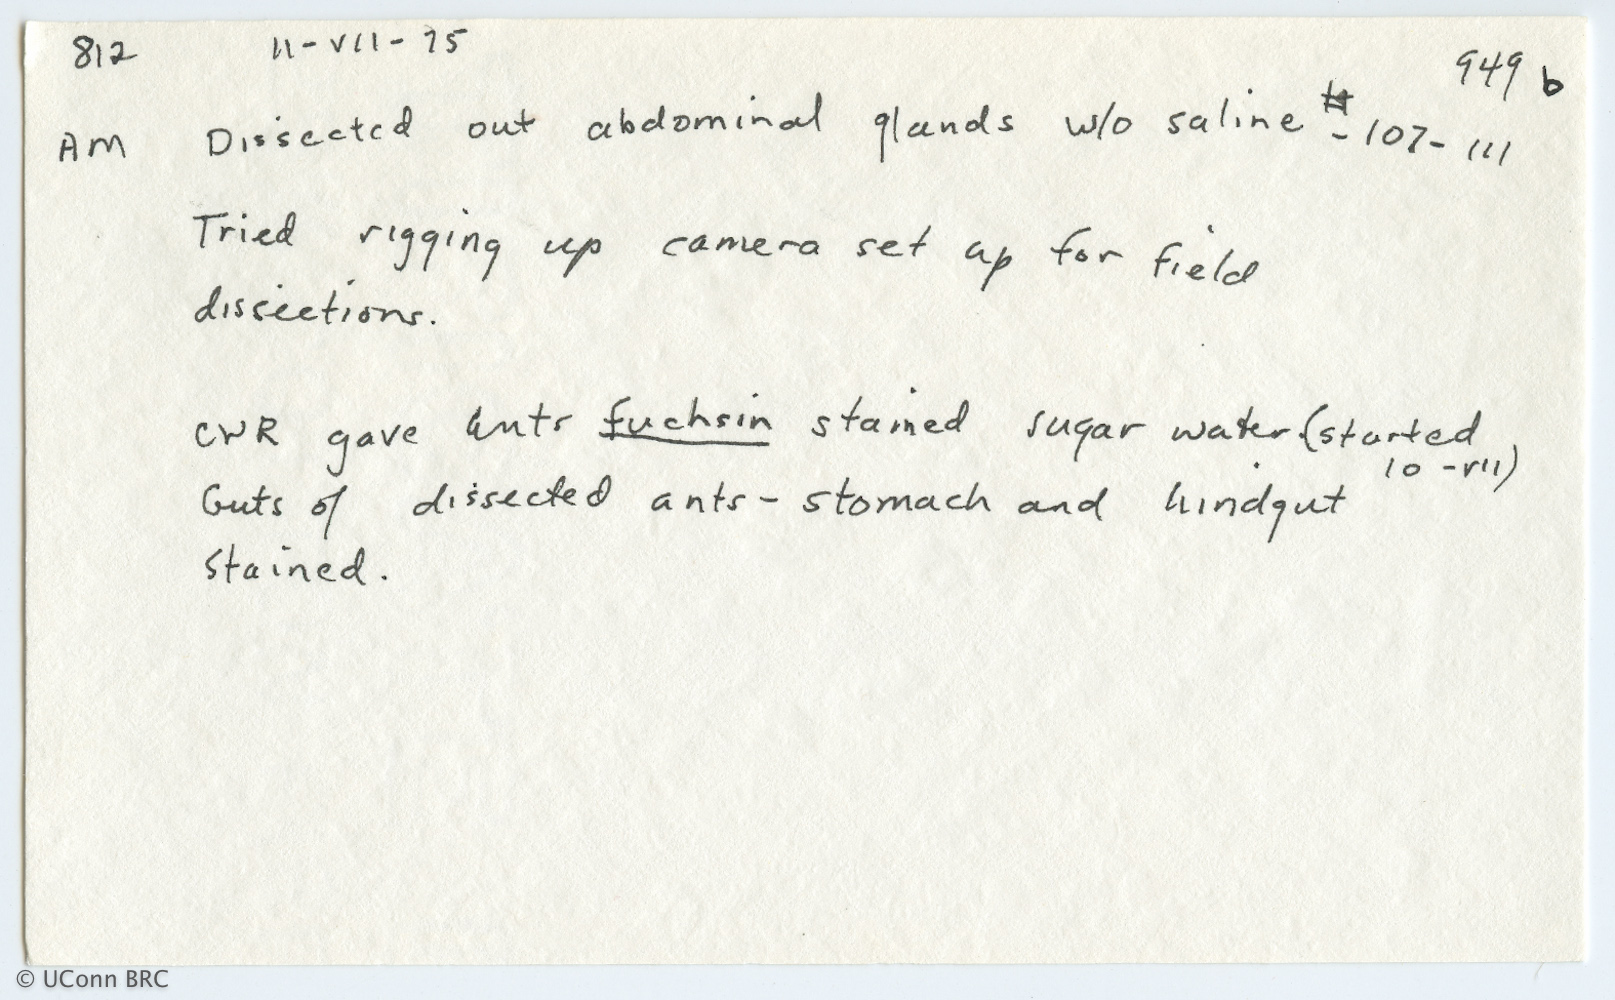 812 11-VII-75 949 b
AM Dissected out abdominal glands w/o saline # - 107-111
Tried rigging up camera set up for field
dissections.
CWR gave ants fuchsin stained sugar water. (started
10-VII)
Guts of dissected ants - stomach and hindgut
stained.
© UConn BRC